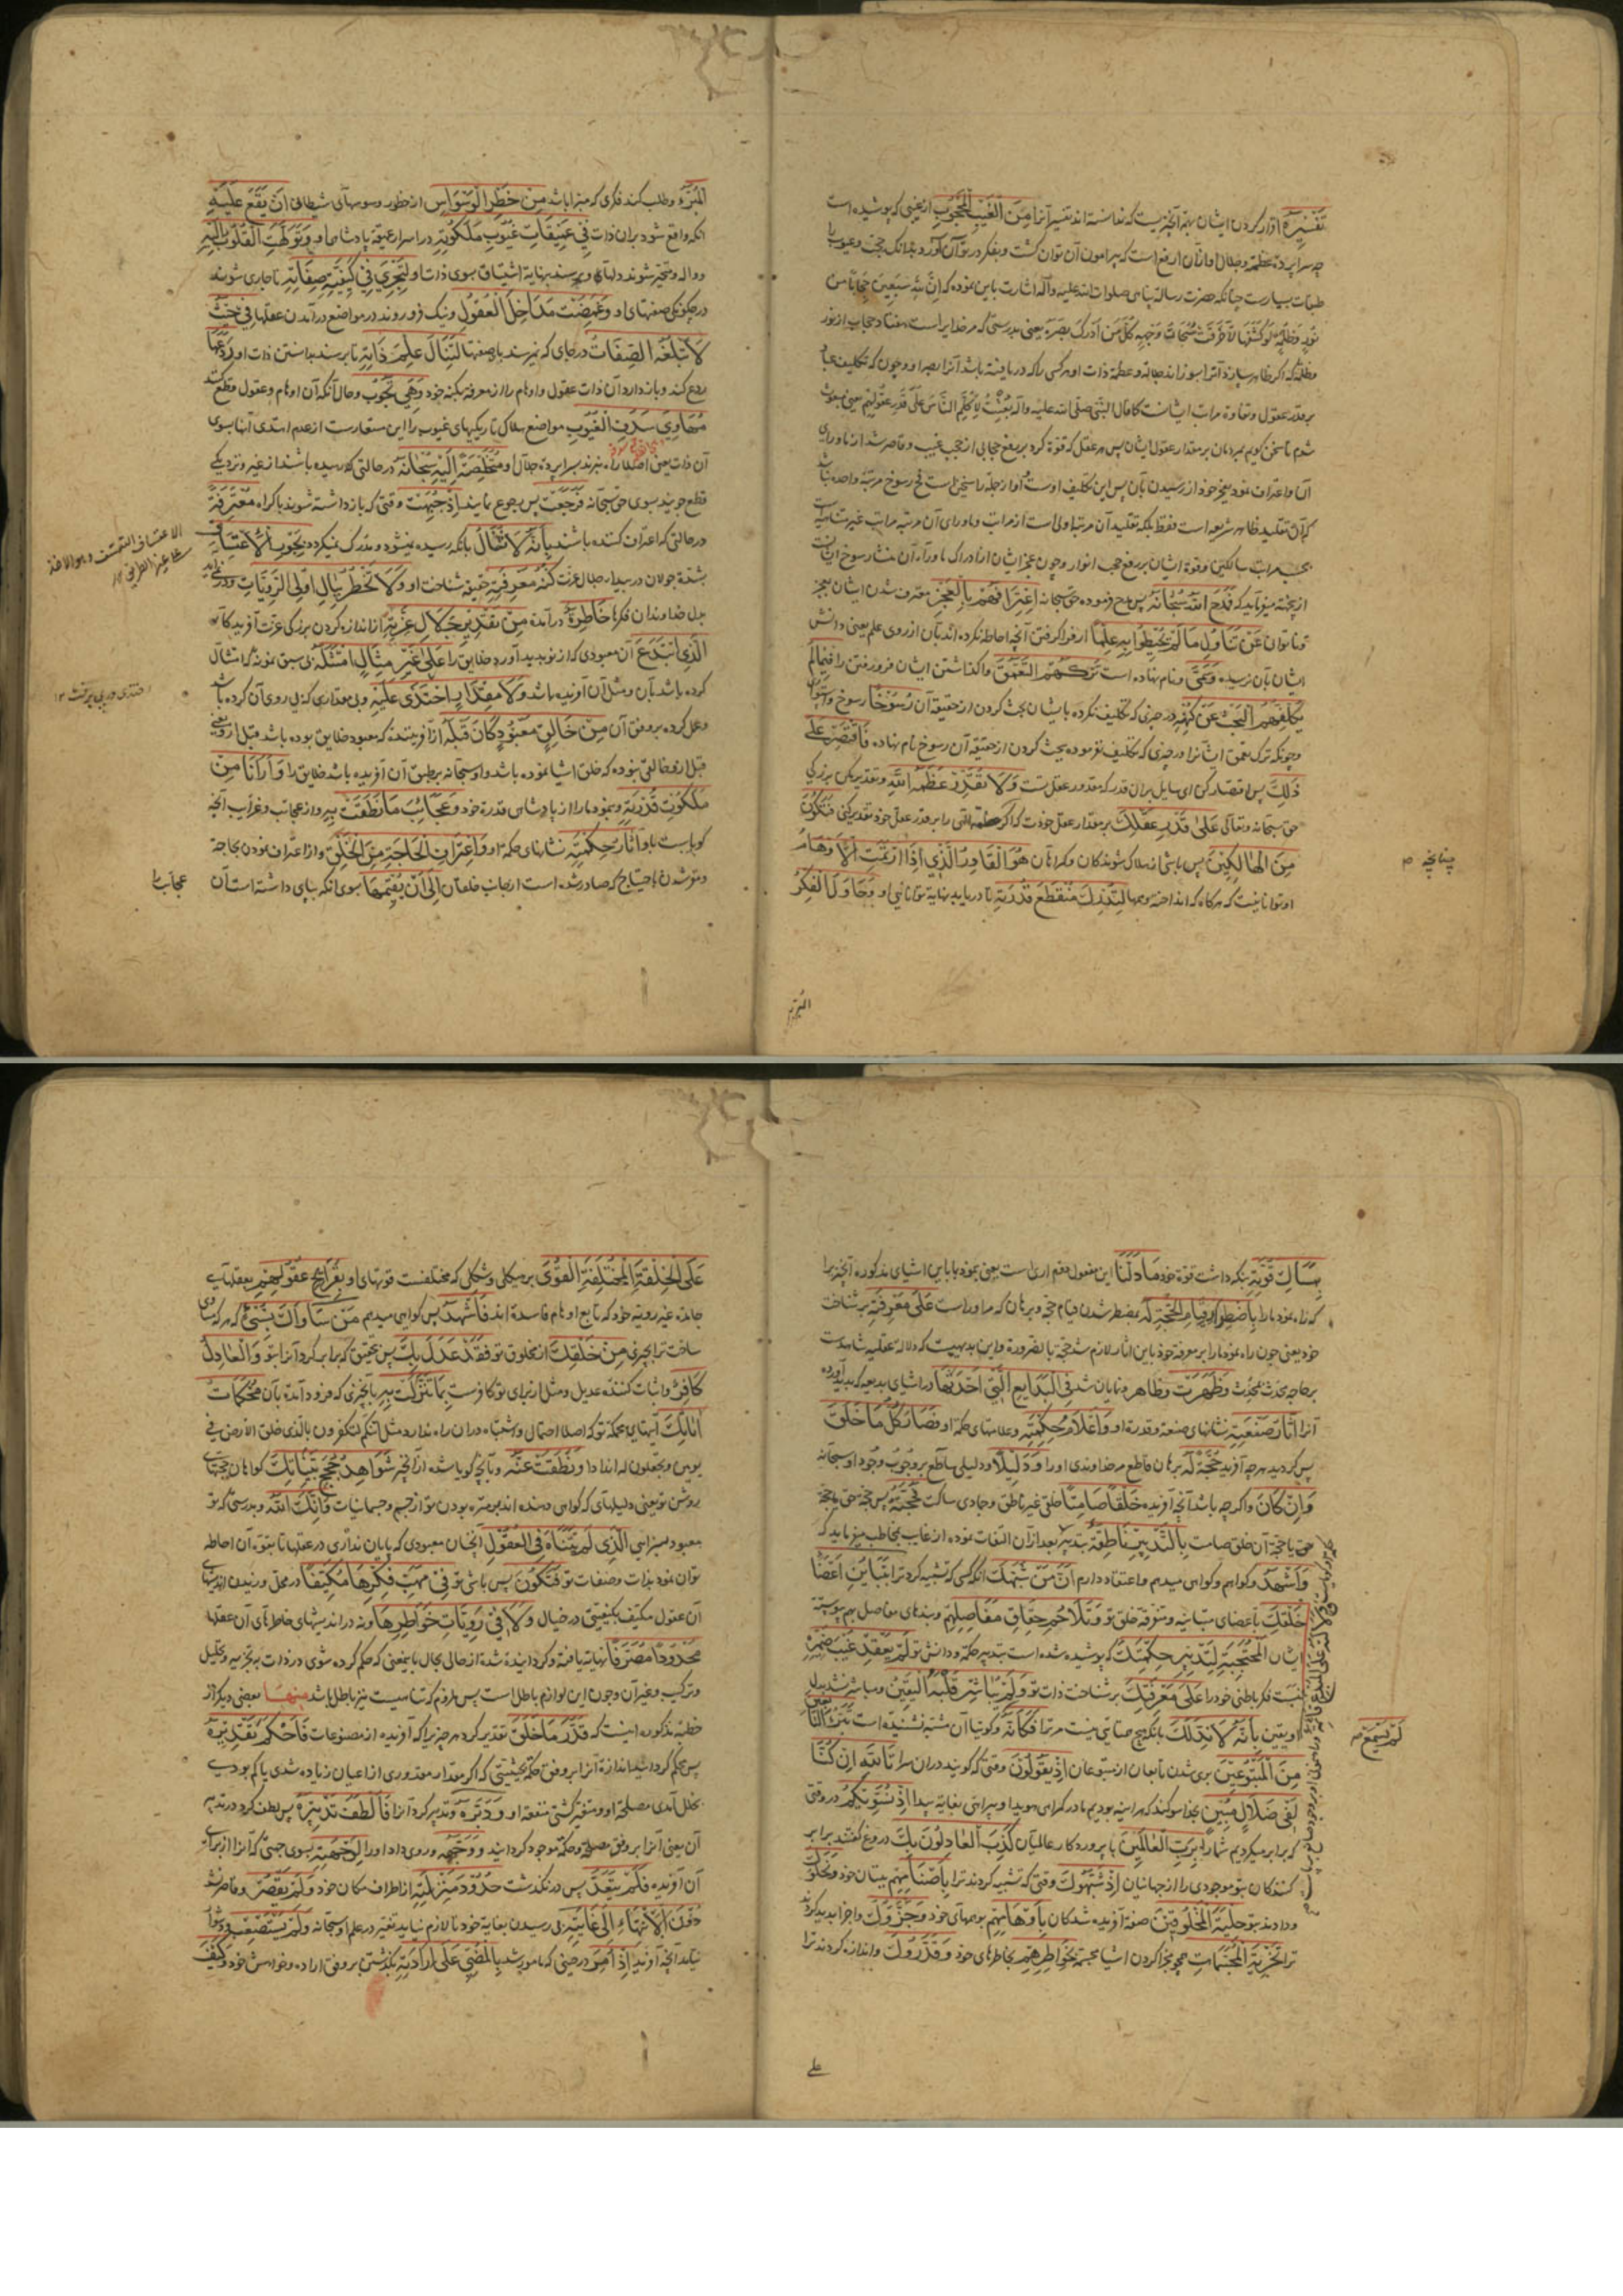 تَفْسِيرَهُ اقرار کردن ایشان بهم آنچیزیست که ندانسته‌اند تفسیر آنرا مِنَ الْغَيْبِ الْمَحْجُوبِ از غیبی که پوشیده است
چه سراپرده عظمة و جلال او از آن ارفع است که پیرامون آن توان کشت و بفکر در توان آن آورد بدانک حجب و غیوب را
طبقات بسیارست چنانکه حضرت رسالة پناهی صلوات الله علیه و آله اشارت باین نموده که اِنَّ لِلّهِ سَبْعِينَ حِجَابًا مِن
نُورٍ وَظُلْمَةٍ لَوْ كَشَفَهَا لَأَحْرَقَتْ سُبُحَاتُ وَجْهِهِ كُلَّ مَنْ أَدْرَكَ بَصَرُهُ یعنی بدرستی که مر خدایراست هفتاد حجاب از نور
و ظلمة که اگر ظاهر سازد آنرا بسوزاند جلالة و عظمة ذات او هر کسی را که دریافته باشد آنرا بصر او و چون که تکلیف عباد
بر قدر عقول و تفاوة مراتب ایشانست کما قال النبی صلی الله علیه و آله بُعِثْتُ لِأُكَلِّمَ النَّاسَ عَلَى قَدْرِ عُقُولِهِمْ یعنی مبعوث
شدم تا سخن کویم بمردمان بر مقدار عقول ایشان پس هر عقل که قوة کرد بر رفع حجابی از حجب غیب و قاصر شد از ماورای
آن و اعتراف نمود بعجز خود از رسیدن بآن پس این تکلیف اوست و او از جمله راسخین است پس رسوخ مرتبه واحده نباشد
که آن تقلید ظاهر شریعه است فقط بلکه تقلید آن مرتبه اولی است از مراتب و ماورای آن مرتبه مراتب غیر متناهیست
بحسب مراتب سالکین و قوة ایشان بر رفع حجب انوار و چون عجز ایشان از ادراک ماوراء آن منشاء رسوخ ایشانست
از پخته میفرماید که فَمَدَحَ اللَّهُ سُبْحَانَهُ پس مدح فرموده حق سبحانه اعْتِرَافَهُمْ بِالْعَجْزِ معترف شدن ایشان بعجز
و ناتوان عَنْ تَنَاوُلِ مَا لَمْ يُحِيطُوا بِهِ عِلْمًا از فرا گرفتن آنچه احاطه نکرده اند بآن از روی علم یعنی دانش
ایشان بآن نرسیده وَسَمَّى و نام نهاده است تَرْكَهُمُ التَّعَمُّقَ واکذاشتن ایشان فرو رفتن را فِيمَا لَمْ
يُكَلِّفْهُمُ الْبَحْثَ عَنْ كُنْهِهِ در چیزی که تکلیف نکرده بایشان بحث کردن از حقیقة آن رُسُوخًا رسوخ
و چونکه ترک تعمق ایشانرا در چیزی که تکلیف نفرموده بحث کردن از حقیقه آن رسوخ نام نهاده فَاقْتَصِرْ عَلَى
ذَلِكَ پس اقتصار کن ای سایل بران قدر که مقدور عقل تست وَلَا تُقَدِّرْ عَظَمَةَ اللَّهِ و تقدیر مکن بزرکی
حق سبحانه و تعالی عَلَى قَدْرِ عَقْلِكَ بر مقدار عقل خودت که اگر عظمة الهی را بر قدر عقل خود تقدیر کنی فَتَكُونَ
مِنَ الْهَالِكِينَ پس باشی از هلاک شوندکان و کمراهان هُوَ الْقَادِرُ الَّذِي إِذَا ارْتَمَتِ الْأَوْهَامُ
او توانائیست که هرکاه که انداخته وهمها لِتُدْرِكَ مُنْقَطَعَ قُدْرَتِهِ تا دریابد نهایة توانائی او وَحَاوَلَ الْفِكْرُ
چنانچه م
المبرء
الْمُبَرَّءُ و طلب کند فکری که مبرا باشد مِنْ خَطَرِ الْوَسْوَاسِ از خطور وسوسهای شیطانی أَنْ يَقَعَ عَلَيْهِ
انکه واقع شود بران ذات فِي عَمِيقَاتِ غُيُوبِ مَلَكُوتِهِ در اسرار عمیقه پادشاهی او وَتَوَلَّهَتِ الْقُلُوبُ إِلَيْهِ
و واله و متحیر شوند دلها و برسند بنهایة اشتیاق بسوی ذات او لِتَجْرِيَ فِي كَيْفِيَّةِ صِفَاتِهِ تا جاری شوند
در چکونکی صفتهای او وَغَمَضَتْ مَدَاخِلُ الْعُقُولِ و نیک فرو روند در مواضع درآمدن عقلها فِي حَيْثُ
لَا تَبْلُغُهُ الصِّفَاتُ در جای که نمیرسند بآن صفتها لِتَنَالَ عِلْمَ ذَاتِهِ تا برسند بدانستن ذات او رَدَعَهَا
ردع کند و باز دارد آن ذات عقول و اوهام را از معرفة بکنه خود وَهِيَ تَجُوبُ و حال آنکه آن اوهام و عقول قطع کنند
مَهَاوِيَ سُدَفِ الْغُيُوبِ مواضع هلاک تاریکیهای غیوب را این مستعارست از عدم اهتدای آنها بسوی
آن ذات یعنی اصلا راه نبرند بسراپرده جلال او مُتَخَلِّصَةً إِلَيْهِ سُبْحَانَهُ در حالتی که رسیده باشند از غیر و نزدیکی
قطع جویند بسوی حق سبحانه فَرَجَعَتْ پس رجوع نمایند إِذْ جُبِهَتْ وقتی که باز داشته شوند باکراه مُعْتَرِفَةً
در حالتی که اعتراف کننده باشند بِأَنَّهُ لَا يُنَالُ بانکه رسیده نمیشود و مدرک نمیکردد بِجَوْرِ الْاعْتِسَافِ
بشدة جولان در بیداء جلال عزت كُنْهُ مَعْرِفَتِهِ حقیقه شناخت او وَلَا تَخْطُرُ بِبَالِ أُولِي الرَّوِيَّاتِ و در نیاید
بدل خداوندان فکرها خَاطِرَةٌ درآمده مِنْ تَقْدِيرِ جَلَالِ عِزَّتِهِ از اندازه کردن بزرکی عزت آفریدکار
الَّذِي ابْتَدَعَ آن معبودی که از نو پدید آورد خلایق را عَلَى غَيْرِ مِثَالٍ امْتَثَلَهُ بی سبق نمونه که امتثال
کرده باشد بآن و مثل آن آفریده باشد وَلَا مِقْدَارٍ احْتَذَى عَلَيْهِ و بی مقداری که پی روی آن کرده باشد
و عمل کرده بر وفق آن مِنْ خَالِقٍ مَعْبُودٍ كَانَ قَبْلَهُ از آفریننده که معبود خلایق بوده باشد قبل از وی
قبل از و خالقی نبوده که خلق اشیا نموده باشد و او سبحانه بر طبق آن آفریده باشد خلایق را وَأَرَانَا مِنْ
مَلَكُوتِ قُدْرَتِهِ و بنمود ما را از پادشاهی قدرة خود وَعَجَائِبِ مَا نَطَقَتْ بِهِ و از عجایب و غرایب آنچه
کویاست باو آثَارُ حِكْمَتِهِ نشانهای حکمة او وَاعْتِرَافِ الْحَاجَةِ مِنَ الْخَلْقِ و از اعتراف نمودن بحاجة
و مقر شدن باحتیاج که صادر شده است از جانب خلقان إِلَى أَنْ يُقِيمَهَا بسوی انکه بپای داشته است آن
الاعتساف التعسف و هو الاخذ
علی غیر الطریق
عجایب را
بِمِسَاكِ قُوَّتِهِ بنکه داشت قوة خود مَا دَلَّنَا این مفعول دوم ارانا است یعنی بنمود بما با این اشیای مذکوره آنچیزیرا
که راه نمود ما را بِاضْطِرَارِ قِيَامِ الْحُجَّةِ لَهُ بمضطر شدن قیام حجة و برهان که مر اوراست عَلَى مَعْرِفَتِهِ بر شناخت
خود یعنی چون راه نمود ما را بر معرفة خود باین آثار لازم شد حجة بالضرورة و این بدیهیست که دلالة عقلیه شاهدست
بر حاجة محدث بمحدث وَظَهَرَتْ و ظاهر و نمایان شد فِي الْبَدَائِعِ الَّتِي أَحْدَثَهَا در اشیای بدیعه که پدید آورده
آنرا آثَارُ صَنْعَتِهِ نشانهای صنعة و قدرة او وَأَعْلَامُ حِكْمَتِهِ و علامتهای حکمة او فَصَارَ كُلُّ مَا خَلَقَ
پس کردید هر چه آفرید حُجَّةً لَهُ برهان قاطع مر خداوندی او را وَدَلِيلًا و دلیلی ساطع بر وجوب وجود او سبحانه
وَإِنْ كَانَ و اکر چه باشد آنچه آفریده خَلْقًا صَامِتًا خلقی غیر ناطق و جمادی ساکت فَحُجَّتُهُ پس حجة حق یا حجة
حق یا حجة آن خلق صامت بِالتَّدْبِيرِ نَاطِقَةٌ بتدبیر بعد از آن التفات نموده از غایب بمخاطب میفرماید که
وَأَشْهَدُ و کواهم و کواهی میدهم و اعتقاد دارم أَنَّ مَنْ شَبَّهَكَ انکه کسی که تشبیه کرد ترا بِتَبَايُنِ أَعْضَاءِ
خَلْقِكَ باعضای متباینه و متفرقه خلق تو وَتَلَاحُمِ حِقَاقِ مَفَاصِلِهِمُ و بندهای مفاصل بهم پیوسته
ایشان الْمُحْتَجِبَةِ لِتَدْبِيرِ حِكْمَتِكَ که پوشیده شده است بتدبیر حکمة و دانش تو لَمْ يَعْقِدْ غَيْبَ ضَمِيرِهِ
نبست فکر باطنی خود را عَلَى مَعْرِفَتِكَ بر شناخت ذات تو وَلَمْ يُبَاشِرْ قَلْبَهُ الْيَقِينُ و مباشر نشد بدل
او یقین بِأَنَّهُ لَا نِدَّ لَكَ بانکه هیچ همتایی نیست مر ترا فَكَأَنَّهُ و کوئیا آن مشبه نشنیده است تَبَرُّؤَ التَّابِعِينَ
مِنَ الْمَتْبُوعِينَ بری شدن تابعان از متبوعان إِذْ يَقُولُونَ وقتی که کویند دران سرا تَاللَّهِ إِنْ كُنَّا
لَفِي ضَلَالٍ مُبِينٍ بخدا سوکند که هراینه بودیم ما در کمراهی هویدا و بیراهی بغایة پیدا إِذْ نُسَوِّيكُمْ در وقتی
که برابر میکردیم شما را بِرَبِّ الْعَالَمِينَ با پروردکار عالمیان كَذَبَ الْعَادِلُونَ بِكَ دروغ کفتند برابر
کنندکان بتو موجودی را از جهانیان إِذْ شَبَّهُوكَ وقتی که تشبیه کردند ترا بِأَصْنَامِهِمْ ببتان خود وَنَحَلُوكَ
و دادند بتو حِلْيَةَ الْمَخْلُوقِينَ صفة آفریده شدکان بِأَوْهَامِهِمْ بوهمهای خود وَجَزَّءُوكَ و اجزا پدید کردند
ترا تَجْزِئَةَ الْمُجَسَّمَاتِ همچو تجزا کردن اشیا مجسمه بِخَوَاطِرِهِمْ بخاطرهای خود وَقَدَّرُوكَ و اندازه کردند ترا
لَمْ يَسْمَعْ م
علی
عَلَى الْخِلْقَةِ الْمُخْتَلِفَةِ الْقُوَى بر هیکلی و شکلی که مختلفست قوتهای او بِقَرَائِحِ عُقُولِهِمْ بعقلهای
جامده غیر رویة خود که تابع اوهام فاسده اند فَأَشْهَدُ پس کواهی میدهم مَنْ سَاوَاكَ بِشَيْءٍ که هر که مساوی
ساخت ترا بچیزی مِنْ خَلْقِكَ از مخلوق تو فَقَدْ عَدَلَ بِكَ پس بتحقیق که برابر کرد آنرا بتو وَالْعَادِلُ
كَافِرٌ و اثبات کننده عدیل و مثل از برای تو کافرست بِمَا تَنَزَّلَتْ بِهِ بآنچیزی که فرود آمده بآن مُحْكَمَاتُ
آيَاتِكَ آیتهای محکمه تو که اصلا احتمالی و اشتباه دران راه ندارد مثل ائنکم لتکفرون بالذی خلق الارض فی
یومین و تجعلون له اندادا وَنَطَقَتْ عَنْهُ و بآنچه کویا شده از آنچیز شَوَاهِدُ حُجَجِ بَيِّنَاتِكَ کواهان حجتهای
روشن تو یعنی دلیلهای که کواهی دهنده اند بر منزه بودن تو از جسم و جسمانیات وَأَنَّكَ اللَّهُ و بدرستی که تو
معبود بسزایی الَّذِي لَمْ تَتَنَاهَ فِي الْعُقُولِ آنچنان معبودی که پایان نداری در عقلها تا بتو آن احاطه
توان نمود بذات و صفات تو فَتَكُونَ پس باشی تو فِي مَهَبِّ فِكْرِهَا مُكَيَّفًا در محل وزیدن اندیشهای
آن عقول مکیف بکیفیتی در خیال وَلَا فِي رَوِيَّاتِ خَوَاطِرِهَا و نه در اندیشهای خاطرهای آن عقلها
مَحْدُودًا مُصَرَّفًا نهایة یافته و کردانیده شده از حالی بحالی باینمعنی که حکم کرده شوی در ذات بتجزیه و تحلیل
و ترکیب و غیر آن و چون این لوازم باطل است پس ملزوم که تناهیست نیز باطل باشد مِنْهَا بعضی دیکر از
خطبه مذکوره اینست که قَدَّرَ مَا خَلَقَ تقدیر کرد هر چیزیرا که آفریده از مصنوعات فَأَحْكَمَ تَقْدِيرَهُ
پس محکم کردانید اندازه آنرا بر وفق حکمة بحیثیتی که اکر مقدار مقدوری از اعیان زیاده شدی یا کم بودی
خلل آمدی مصلحة او و متغیر کشتی منفعة او وَدَبَّرَهُ و تدبیر کرد آنرا فَأَلْطَفَ تَدْبِيرَهُ پس لطف کرد در تدبیر
آن یعنی آنرا بر وفق مصلحة و حکمة موجود کردانید وَوَجَّهَهُ و روی داد او را لِوِجْهَتِهِ بسوی جهتی که آنرا از برای
آن آفریده فَلَمْ يَتَعَدَّ پس در نکذشت حُدُودَ مَنْزِلَتِهِ از اطراف مکان خود وَلَمْ يَقْصُرْ و قاصر نشد
دُونَ الِانْتِهَاءِ إِلَى غَايَتِهِ از رسیدن بغایة خود تا لازم نیاید تغیر در علم او سبحانه وَلَمْ يَسْتَصْعِبْ و دشوار
نیامد آنچه آفرید إِذْ أُمِرَ در حینی که مامور شد بِالْمُضِيِّ عَلَى إِرَادَتِهِ بکذشتن بر وفق اراده و خواهش خود وَكَيْفَ